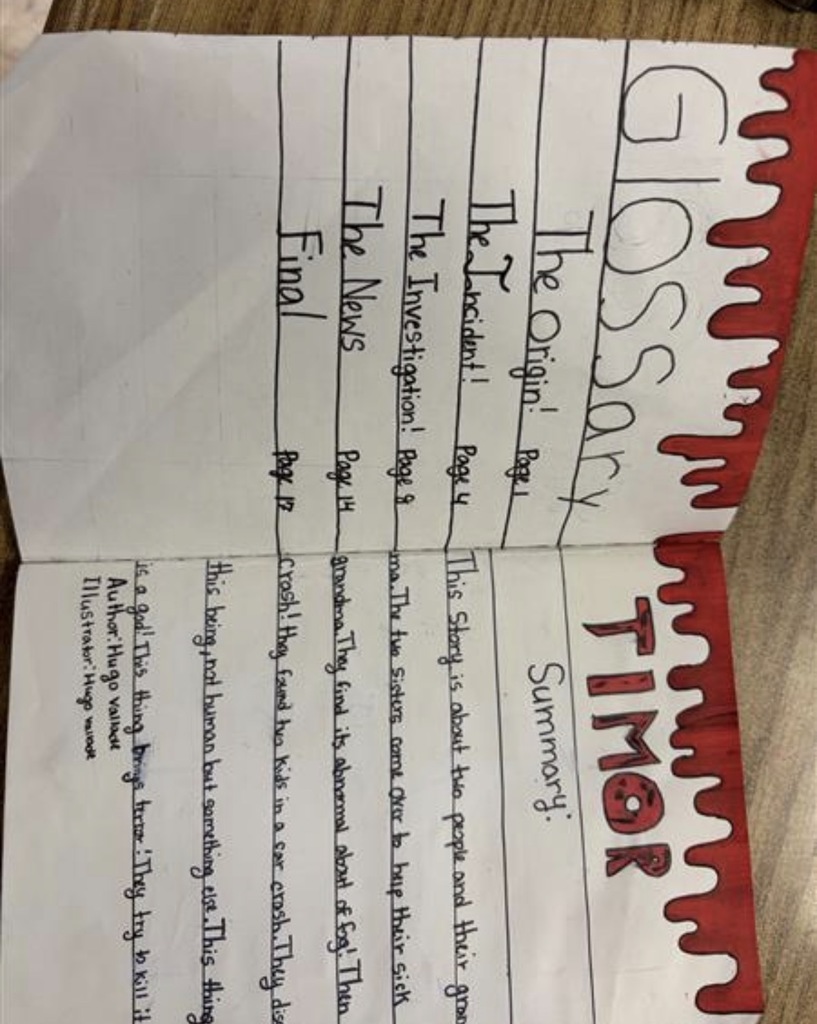 Glossary
The Origin! Page 1
The Incident! Page 4
The Investigation! Page 8
The News Page 14
Final Page 17
TIMOR
Summary:
This Story is about two people and their gran
ma. The two sisters come over to help their sick
grandma. They find its abnormal about of fog! Then
Crash! they found two kids in a car crash. They dis
this being, not human but something else. This thing
is a god! This thing brings terror! They try to kill it
Author: Hugo
Illustrator: Hugo